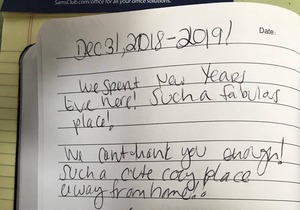 SamsClub.com/office for all your office solutions.
Date:
Dec 31, 2018-2019!
We spent New Years
Eve here! Such a fabulas
place!
We cant thank you enough!
Such a cute cozy place
away from home!!